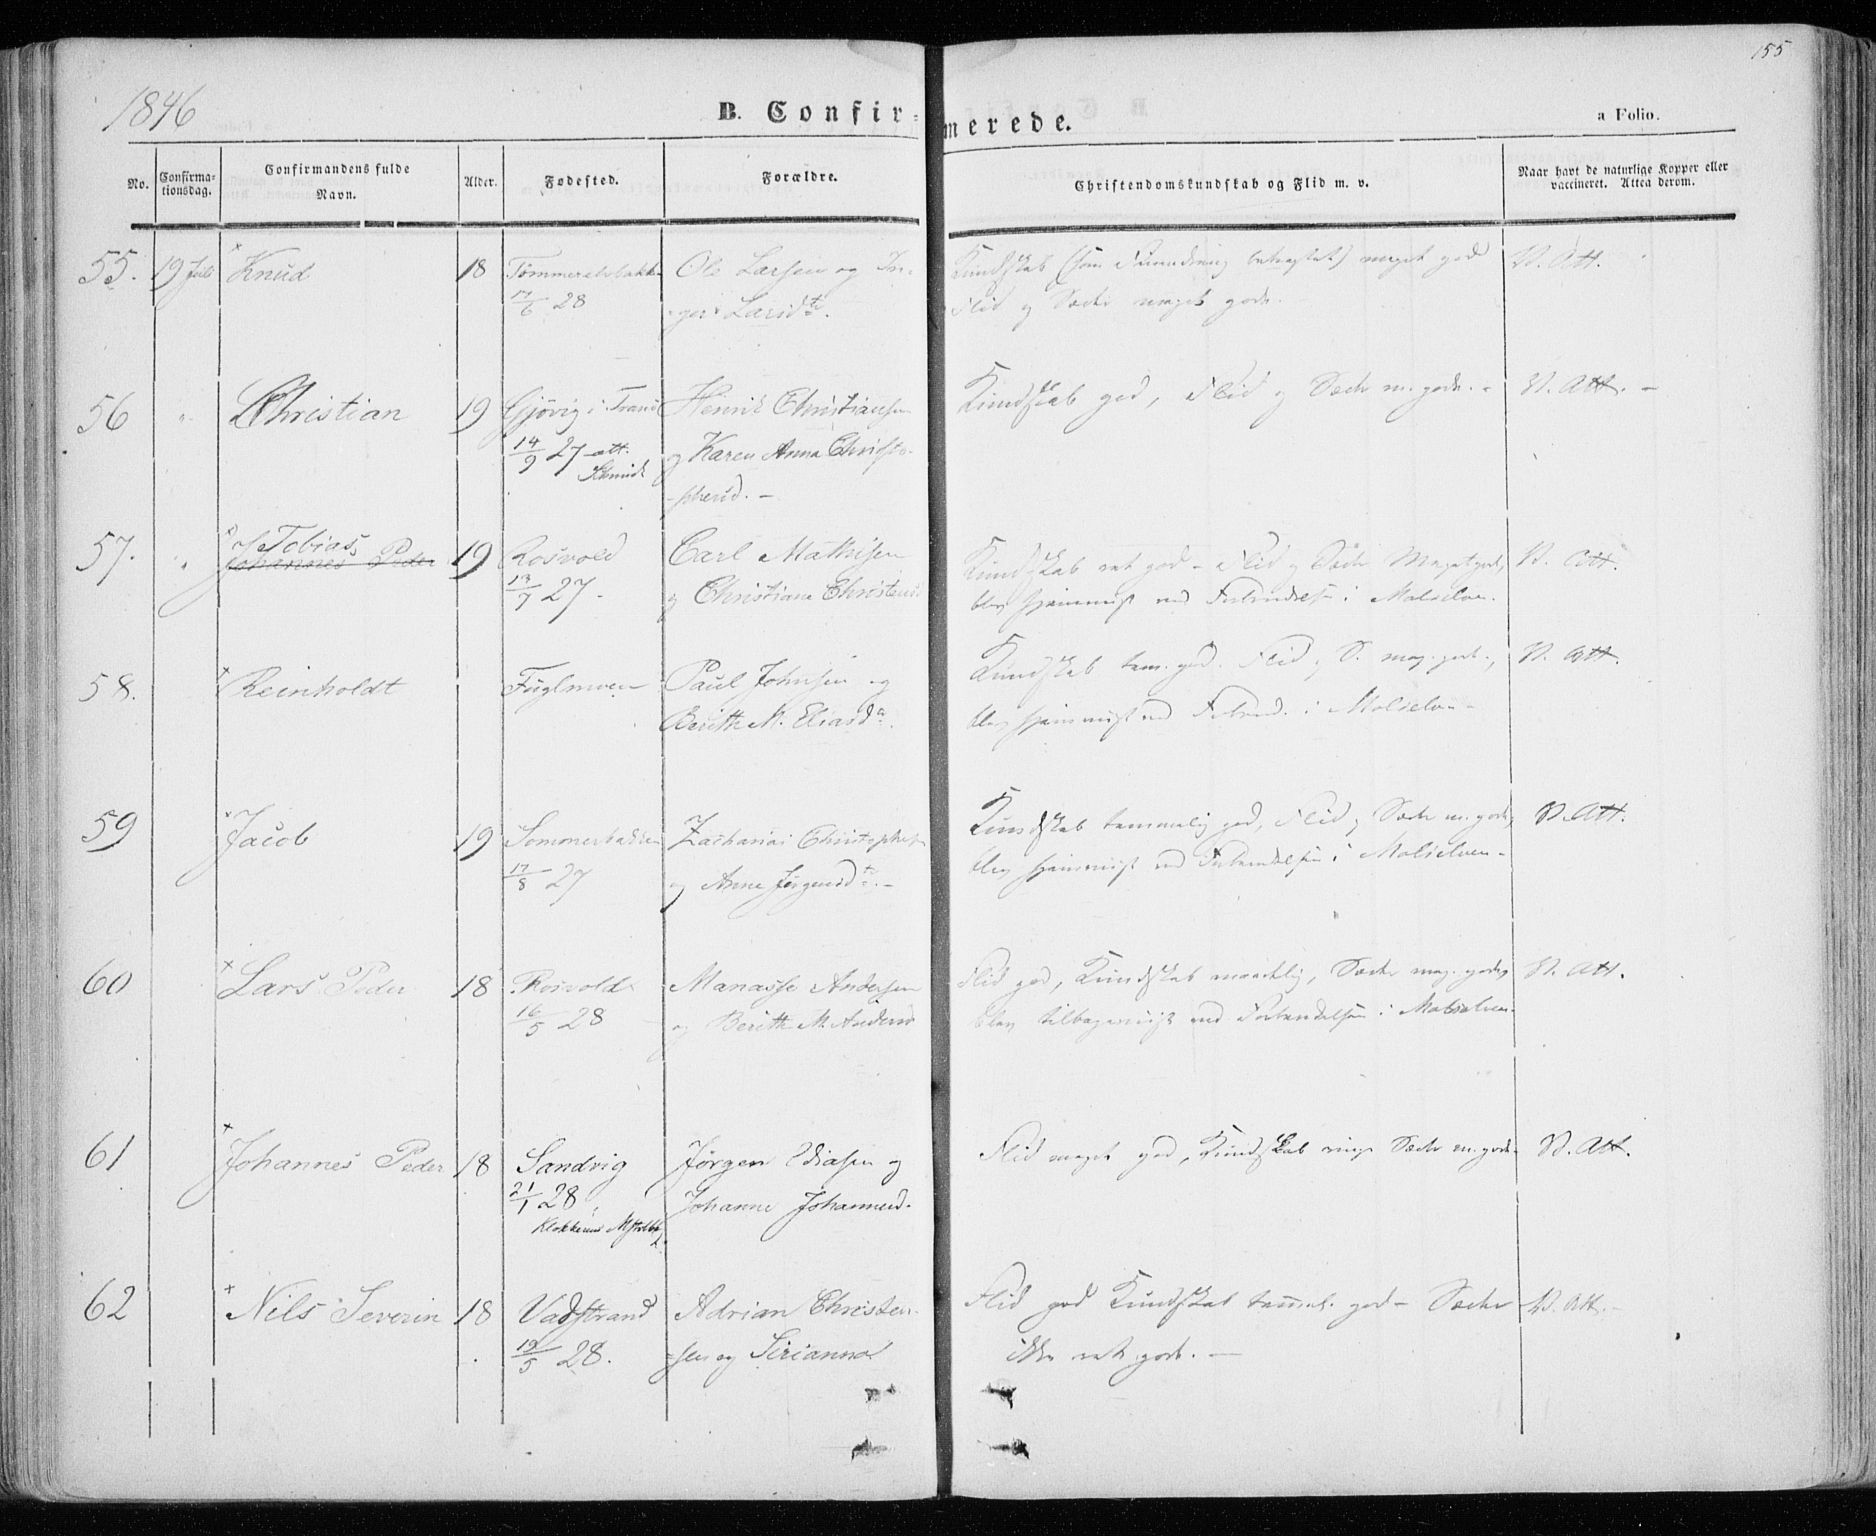 155
1846
B. Confirmerede.
a Folio.
No. Confirmationsdag. Confirmandens fulde Navn. Alder. Fødested. Forældre. Christendomskundskab og Flid m. v. Naar havt de naturlige Kopper eller vaccineret. Attest derom.
55. 19 Juli Knud 18 Ole Larsen og In- Kundskab meget god V. Att.
17/6 28 ger Larsd. Flid og Sæder meget gode.
56 " Christian 19 Gjøvig i Henrik Christiansen Kundskab god, Flid og Sæder m. gode. - V. Att. -
14/9 27 att. og Karen Anna Christo-
-phersd. -
57. " Tobias
Johannes Peder 19 Rosvold Carl Mathisen Kundskab ret god - Flid og Sæder Meget gode, V. Att.
13/7 27. og Christiane Christensd blev hjemmvist ved Forberedelsen i Malselven.
58. Reinholdt Fuglmoen Paul Johnsen og Kundskab tem. god. Flid og S. meg. gode, V. Att.
Berith M. Eliasd. blev hjemmvist ved i Malselven -
59 Jacob 19 Zacharias Christophers Kundskab temmelig god, Flid og Sæder m. gode, V. Att.
17/8 27 og Anne Jørgensd. - blev hjemmvist ved i Malselven -
60 Lars Peder 18 Rosvold Manasse Andersen Flid god, Kundskab maadelig, Sæder meg. gode, V. Att.
16/5 28 og Berith M. Andersd blev tilbagevist ved i Malselven.
61 Johannes Peder 18 Sandvig Jørgen og Flid meget god, Kundskab ringe Sæder m. gode. V. Att.
21/1 28. Johanne Johannesd.
62 Nils Severin 18 Vadstrand Adrian Christen- Flid god Kundskab temmel. god - Sæder V. Att. -
19/5 28. -sen og Sirianna ikke ret gode. -